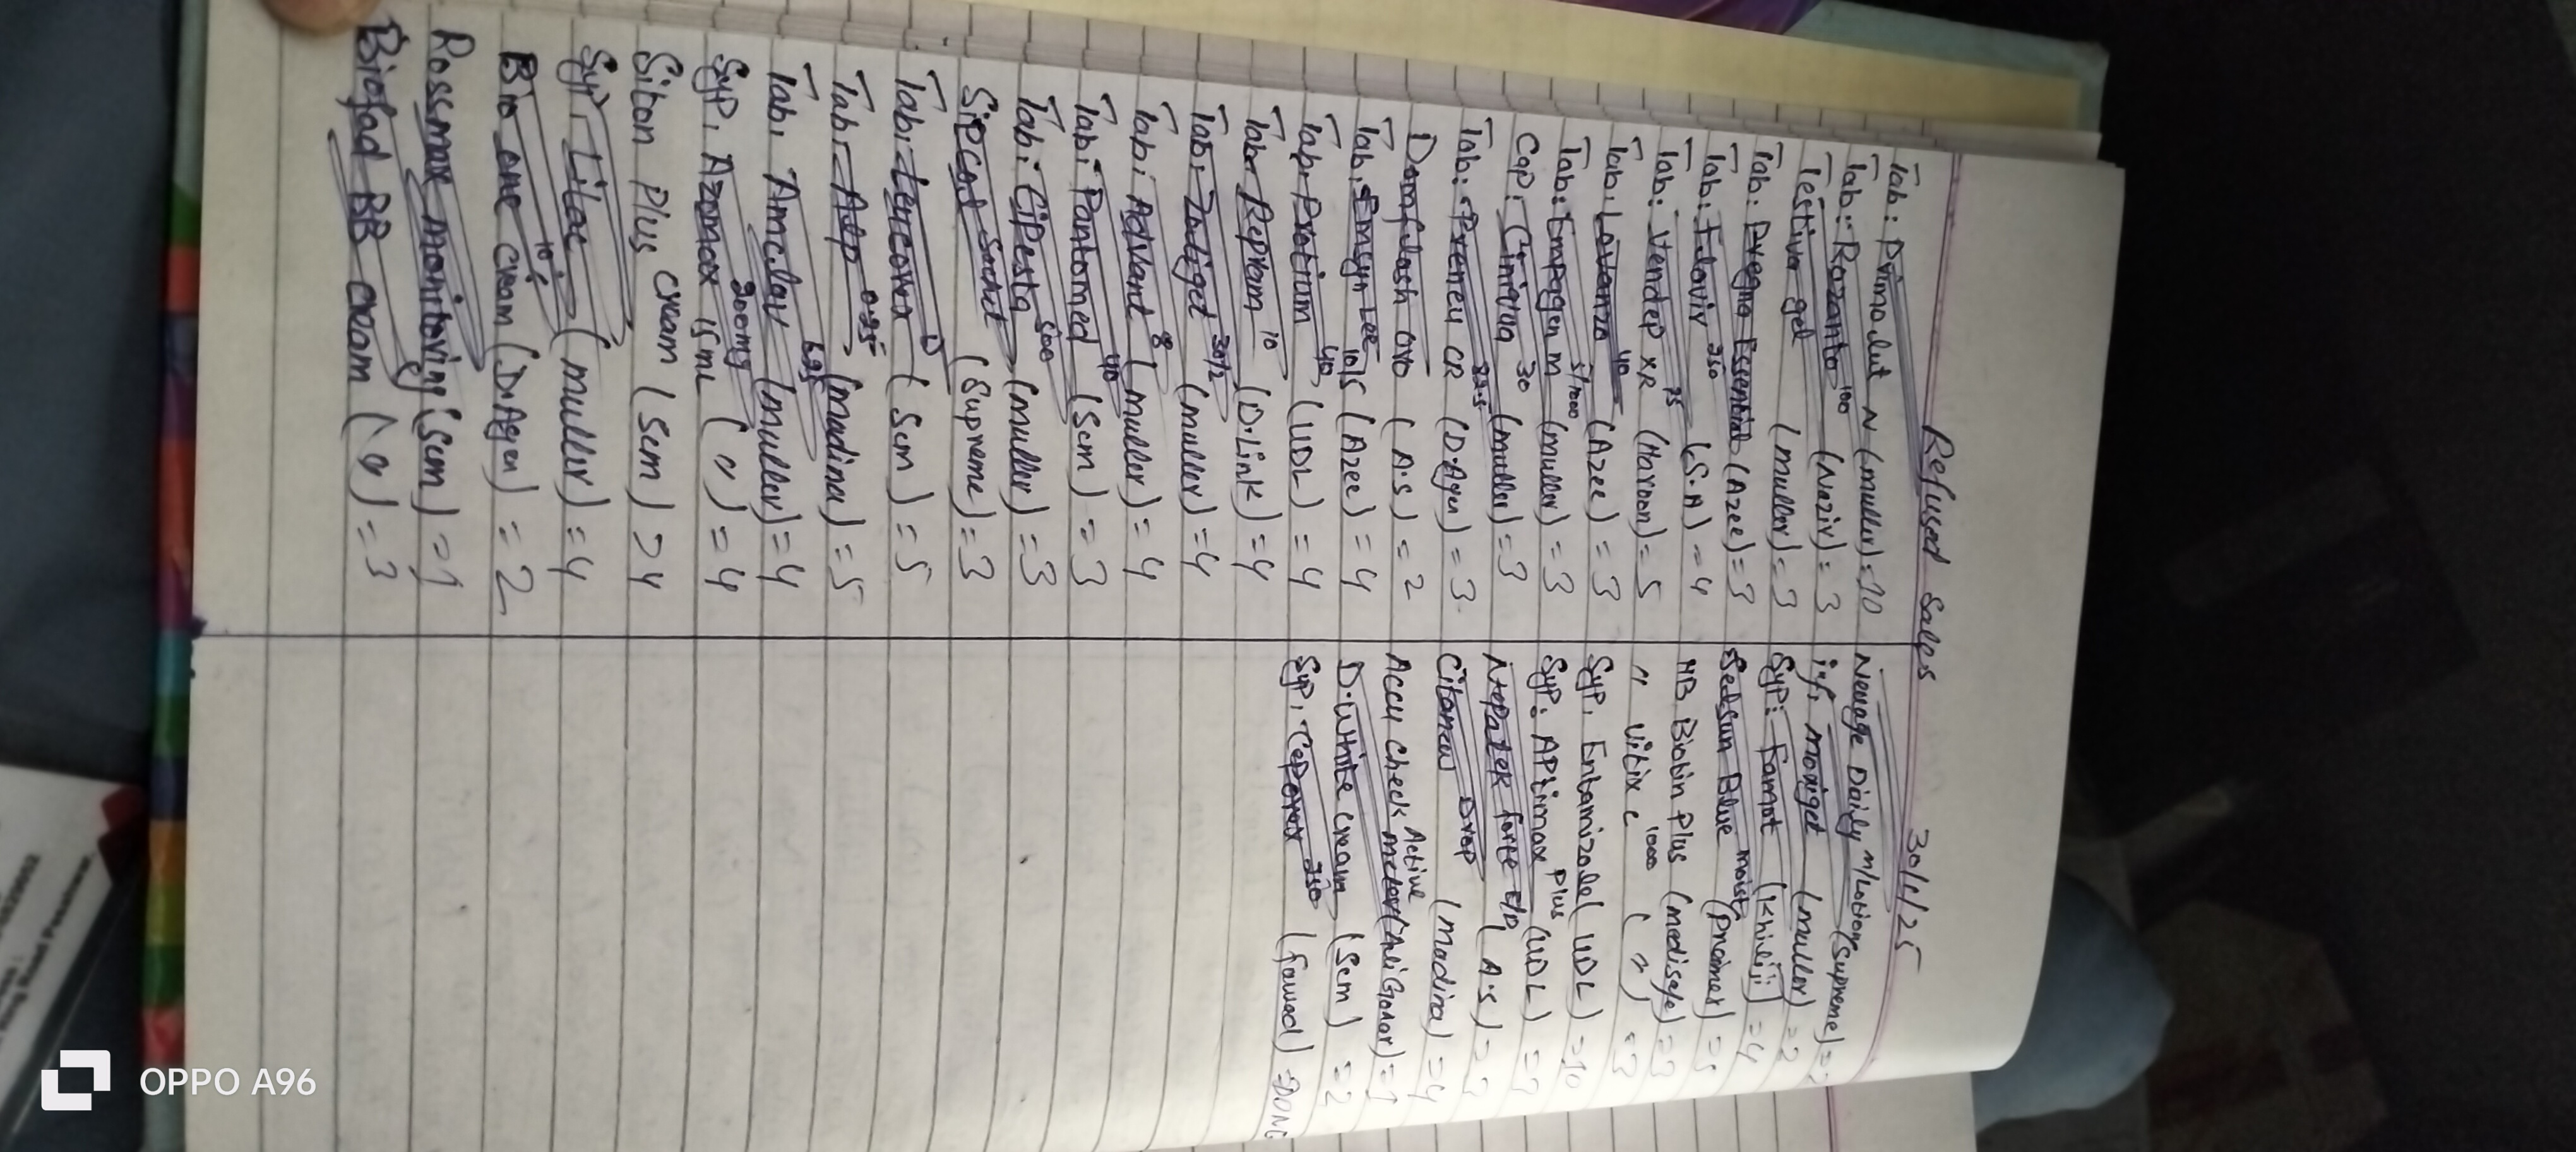 Refused Sales 30/1/25
Tab: Primolut N (muller) = 10
Tab: Rozanto 100 (Nazir) = 3
Testiva gel (muller) = 3
Tab: Pregna Essential (Azee) = 3
Tab: Felovir 250 (S.A) = 4
Tab: Vendep XR 75 (Haroon) = 5
Tab: Lovanza 40 (Azee) = 3
Tab: Empagen m 5/1000 (muller) = 3
Cap: Cimiqua 30 (muller) = 3
Tab: Preneu CR 82.5 (D.Agen) = 3
Domflash oro (A.S) = 2
Tab: Emsyn Lee 10/5 (Azee) = 4
Tab: Protium 40 (UDL) = 4
Tab: Repram 10 (D.Link) = 4
Tab: Zoliget 30/2 (muller) = 4
Tab: Advant 8 (muller) = 4
Tab: Pantomed 40 (Scm) = 3
Tab: CiPesta 500 (muller) = 3
SiPCal Sachet (Supreme) = 3
Tab: D (Scm) = 5
Tab: Alp 0.25 (madina) = 5
Tab: Amclav 625 (muller) = 4
Syp: Azomax 200mg 15mL (") = 4
Siton Plus cream (Scm) = 4
Syp: Lilac (muller) = 4
Bio one cream 10g (D.Agen) = 2
Rossmax monitoring (Scm) = 1
Biofad BB cream (") = 3
Neuage Daily m/Lotion (Supreme) = 2
inf: moxiget (muller) = 2
Syp: Famot (Khiliji) = 4
Sedsun Blue moist (Praimes) = 5
HB Biotin Plus (medisafe) = 3
" Vitix c 1000 (") = 3
Syp: Entamizole (UDL) = 10
Syp: APtimax Plus (UDL) = 3
Nepatek forte E/D (A.S) = 3
Citanew Drop (madina) = 4
Accu Check Active meter (Ali Gohar) = 1
D.White cream (Scm) = 2
Syp: CePorex 250 (fawad) = DONE